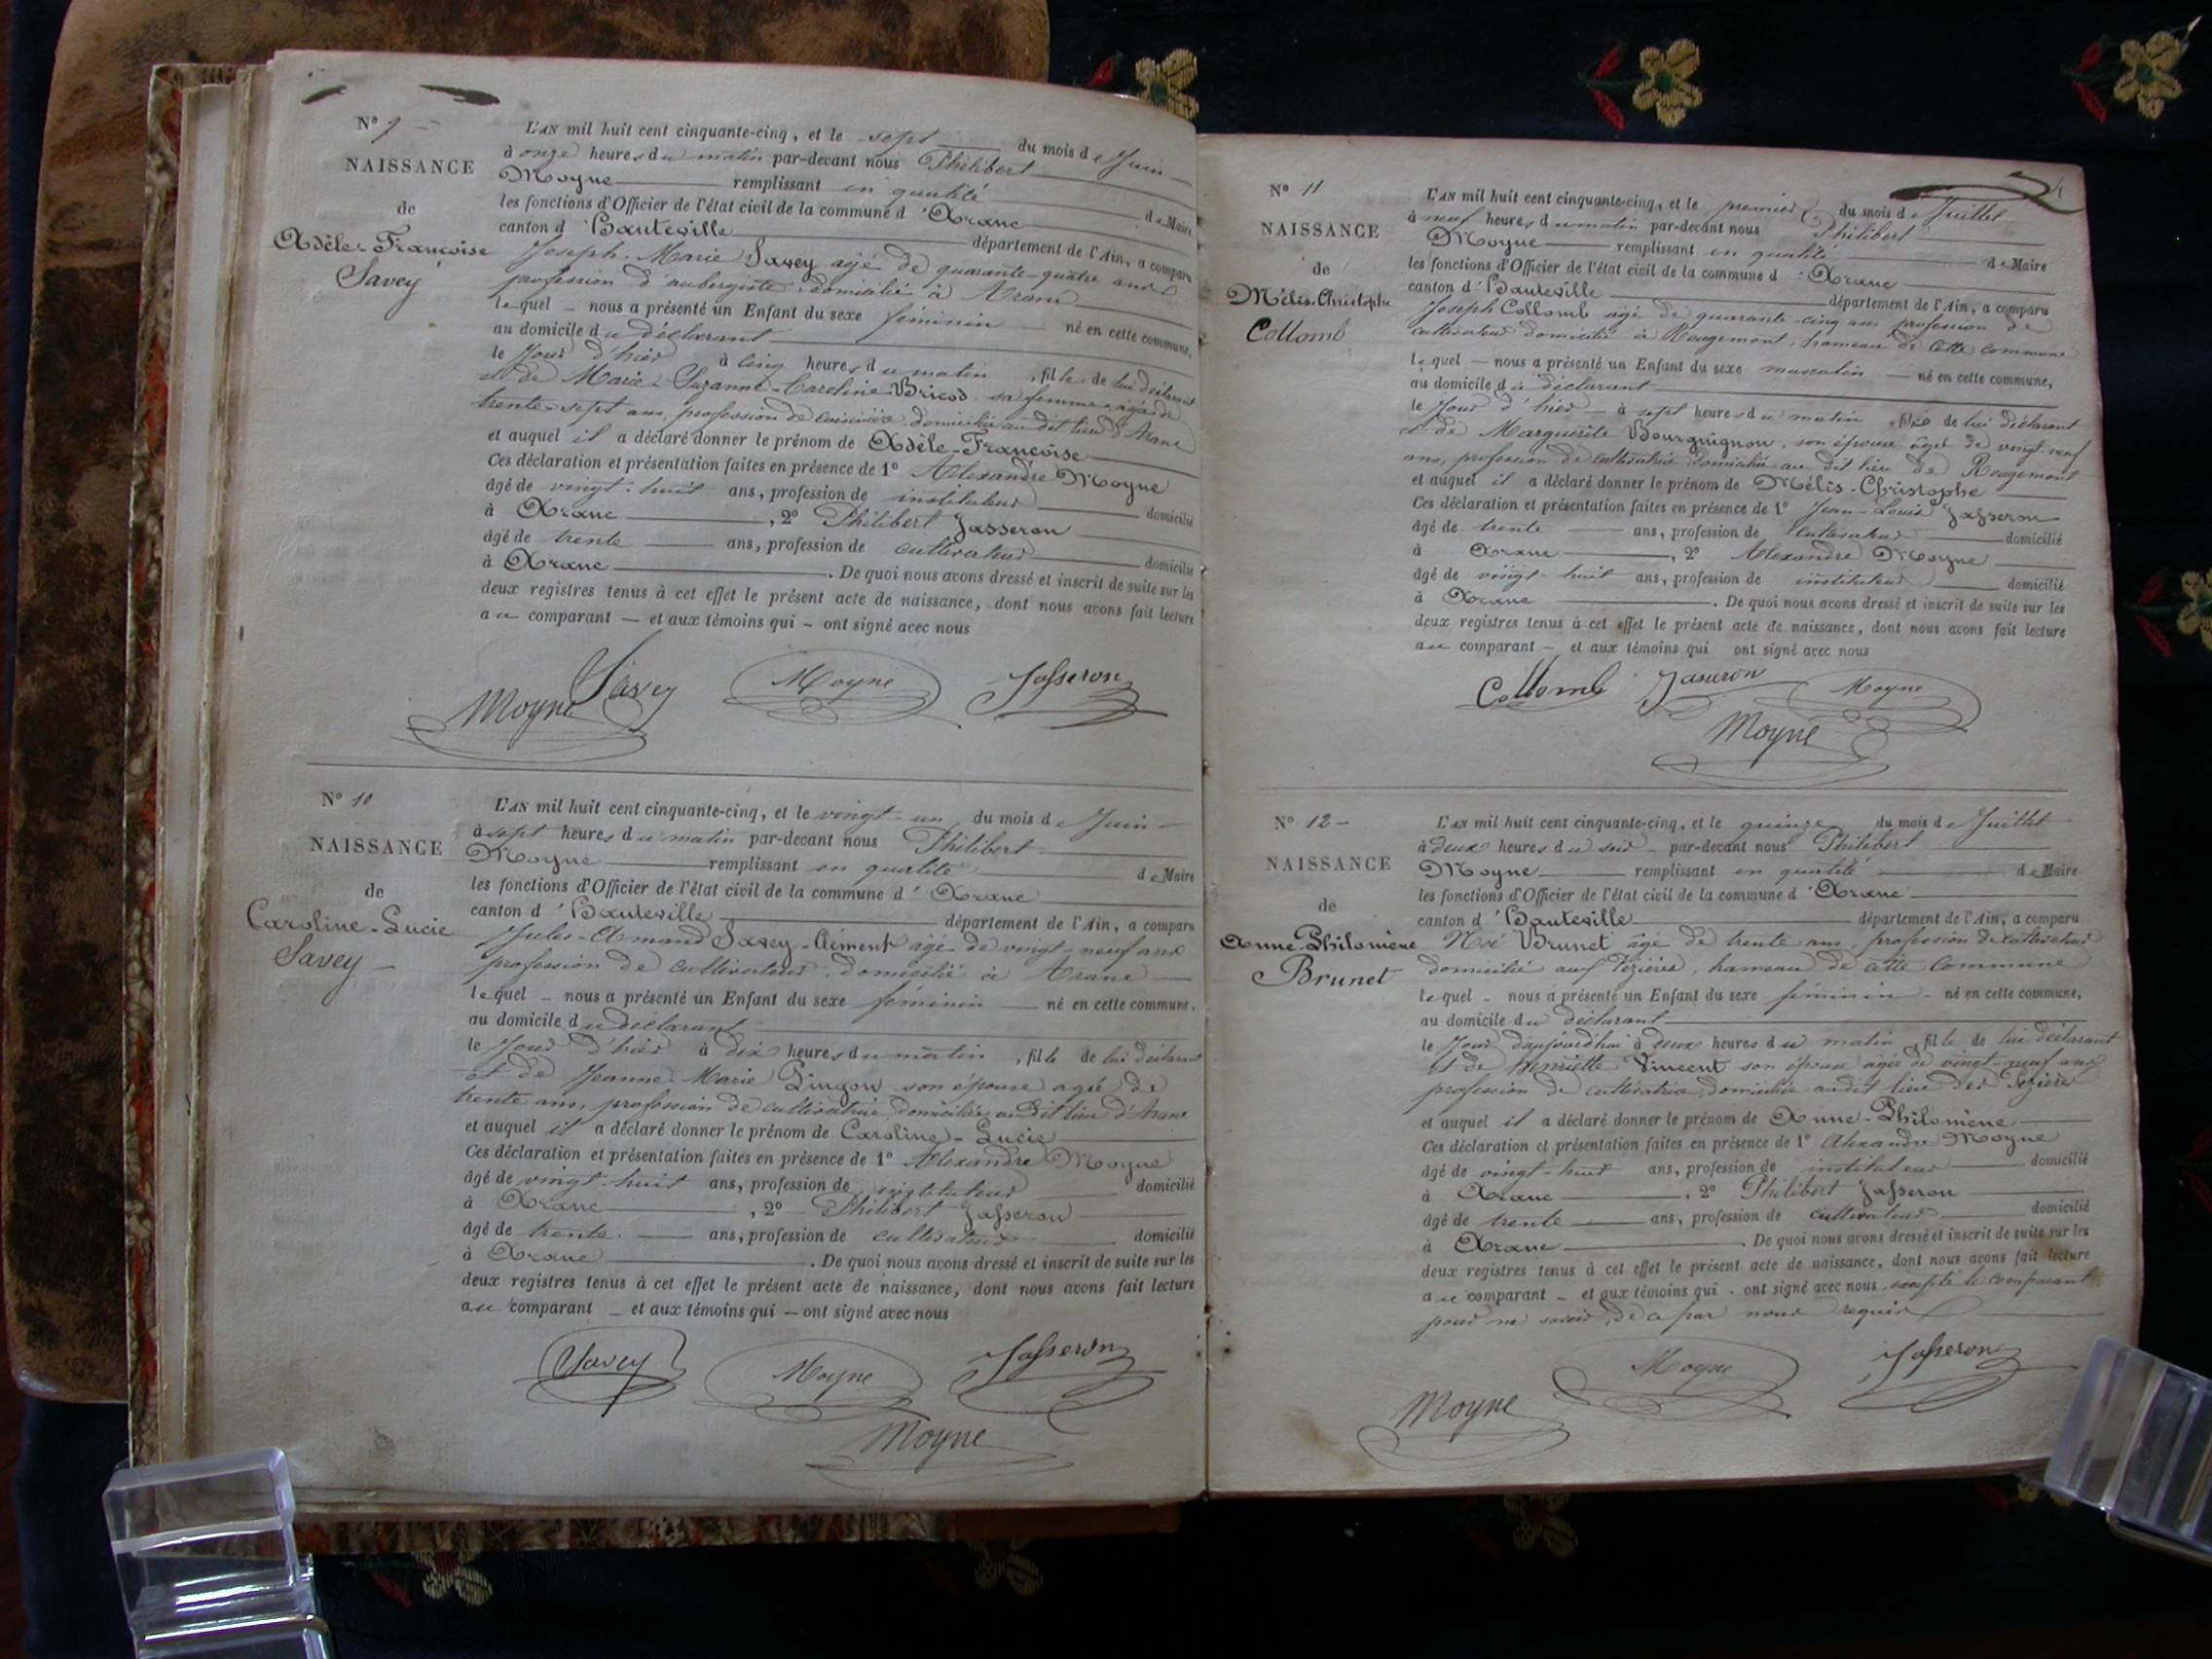 N° 9
NAISSANCE
de
Adèle-Françoise
Savey
L'AN mil huit cent cinquante-cinq, et le sept du mois de Juin
à onze heures du matin par-devant nous Philibert
Moyne remplissant en qualité de Maire
les fonctions d'Officier de l'état civil de la commune d'Aranc
canton d'Hauteville département de l'Ain, a comparu
Joseph-Marie Savey âgé de quarante-quatre ans
profession d'aubergiste, domicilié à Aranc
lequel nous a présenté un Enfant du sexe féminin né en cette commune,
au domicile du déclarant
le jour d'hier à cinq heures du matin, fille de lui déclarant
et de Marie-Suzanne-Caroline Bricod sa femme âgée de
trente-sept ans, profession de cuisinière domiciliée au dit lieu d'Aranc
et auquel il a déclaré donner le prénom de Adèle-Françoise
Ces déclaration et présentation faites en présence de 1° Alexandre Moyne
âgé de vingt-huit ans, profession de instituteur domicilié
à Aranc, 2° Philibert Jasseron
âgé de trente ans, profession de cultivateur domicilié
à Aranc. De quoi nous avons dressé et inscrit de suite sur les
deux registres tenus à cet effet le présent acte de naissance, dont nous avons fait lecture
au comparant et aux témoins qui ont signé avec nous
Savey Moyne Jasseron
Moyne
N° 10
NAISSANCE
de
Caroline-Lucie
Savey
L'AN mil huit cent cinquante-cinq, et le vingt-un du mois de Juin
à sept heures du matin par-devant nous Philibert
Moyne remplissant en qualité de Maire
les fonctions d'Officier de l'état civil de la commune d'Aranc
canton d'Hauteville département de l'Ain, a comparu
Jules-Amand Savey-Clément âgé de vingt-neuf ans
profession de cultivateur, domicilié à Aranc
lequel nous a présenté un Enfant du sexe féminin né en cette commune,
au domicile du déclarant
le jour d'hier à dix heures du matin, fille de lui déclarant
et de Jeanne-Marie Pingon son épouse âgée de
trente ans, profession de cultivatrice domiciliée au dit lieu d'Aranc
et auquel il a déclaré donner le prénom de Caroline-Lucie
Ces déclaration et présentation faites en présence de 1° Alexandre Moyne
âgé de vingt-huit ans, profession de instituteur domicilié
à Aranc, 2° Philibert Jasseron
âgé de trente ans, profession de cultivateur domicilié
à Aranc. De quoi nous avons dressé et inscrit de suite sur les
deux registres tenus à cet effet le présent acte de naissance, dont nous avons fait lecture
au comparant et aux témoins qui ont signé avec nous
Savey Moyne Jasseron
Moyne
N° 11
NAISSANCE
de
Mélis-Christophe
Collomb
L'AN mil huit cent cinquante-cinq, et le premier du mois de Juillet
à neuf heures du matin par-devant nous Philibert
Moyne remplissant en qualité de Maire
les fonctions d'Officier de l'état civil de la commune d'Aranc
canton d'Hauteville département de l'Ain, a comparu
Joseph Collomb âgé de quarante-cinq ans profession de
cultivateur domicilié à Rougemont, hameau de cette commune
lequel nous a présenté un Enfant du sexe masculin né en cette commune,
au domicile du déclarant
le jour d'hier à sept heures du matin, fils de lui déclarant
et de Marguerite Bourguignon, son épouse âgée de vingt-neuf
ans, profession de cultivatrice domiciliée au dit lieu de Rougemont
et auquel il a déclaré donner le prénom de Mélis-Christophe
Ces déclaration et présentation faites en présence de 1° Jean-Louis Jasseron
âgé de trente ans, profession de cultivateur domicilié
à Aranc, 2° Alexandre Moyne
âgé de vingt-huit ans, profession de instituteur domicilié
à Aranc. De quoi nous avons dressé et inscrit de suite sur les
deux registres tenus à cet effet le présent acte de naissance, dont nous avons fait lecture
au comparant et aux témoins qui ont signé avec nous
Collomb Jasseron Moyne
Moyne
N° 12
NAISSANCE
de
Anne-Philomène
Brunet
L'AN mil huit cent cinquante-cinq, et le quinze du mois de Juillet
à deux heures du soir par-devant nous Philibert
Moyne remplissant en qualité de Maire
les fonctions d'Officier de l'état civil de la commune d'Aranc
canton d'Hauteville département de l'Ain, a comparu
Noé Brunet âgé de trente ans, profession de cultivateur
domicilié aux Pézières, hameau de cette commune
lequel nous a présenté un Enfant du sexe féminin né en cette commune,
au domicile du déclarant
le jour d'aujourd'hui à deux heures du matin, fille de lui déclarant
et de henriette Vincent son épouse âgée de vingt-neuf ans
profession de cultivatrice domiciliée audit lieu des Pézières
et auquel il a déclaré donner le prénom de Anne-Philomène
Ces déclaration et présentation faites en présence de 1° Alexandre Moyne
âgé de vingt-huit ans, profession de instituteur domicilié
à Aranc, 2° Philibert Jasseron
âgé de trente ans, profession de cultivateur domicilié
à Aranc. De quoi nous avons dressé et inscrit de suite sur les
deux registres tenus à cet effet le présent acte de naissance, dont nous avons fait lecture
au comparant et aux témoins qui ont signé avec nous, excepté le comparant
pour ne savoir, de ce par nous requis
Moyne Moyne Jasseron